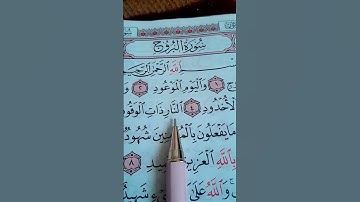 سُورَةُ الْبُرُوجِ
اللَّهِ الرَّحْمَٰنِ الرَّحِيمِ
١ وَالْيَوْمِ الْمَوْعُودِ ٢
الْأُخْدُودِ ٤ النَّارِ ذَاتِ الْوَقُودِ
مَا يَفْعَلُونَ بِالْمُؤْمِنِينَ شُهُودٌ
بِاللَّهِ الْعَزِيزِ ٨
وَاللَّهُ عَلَىٰ شَهِيدٌ